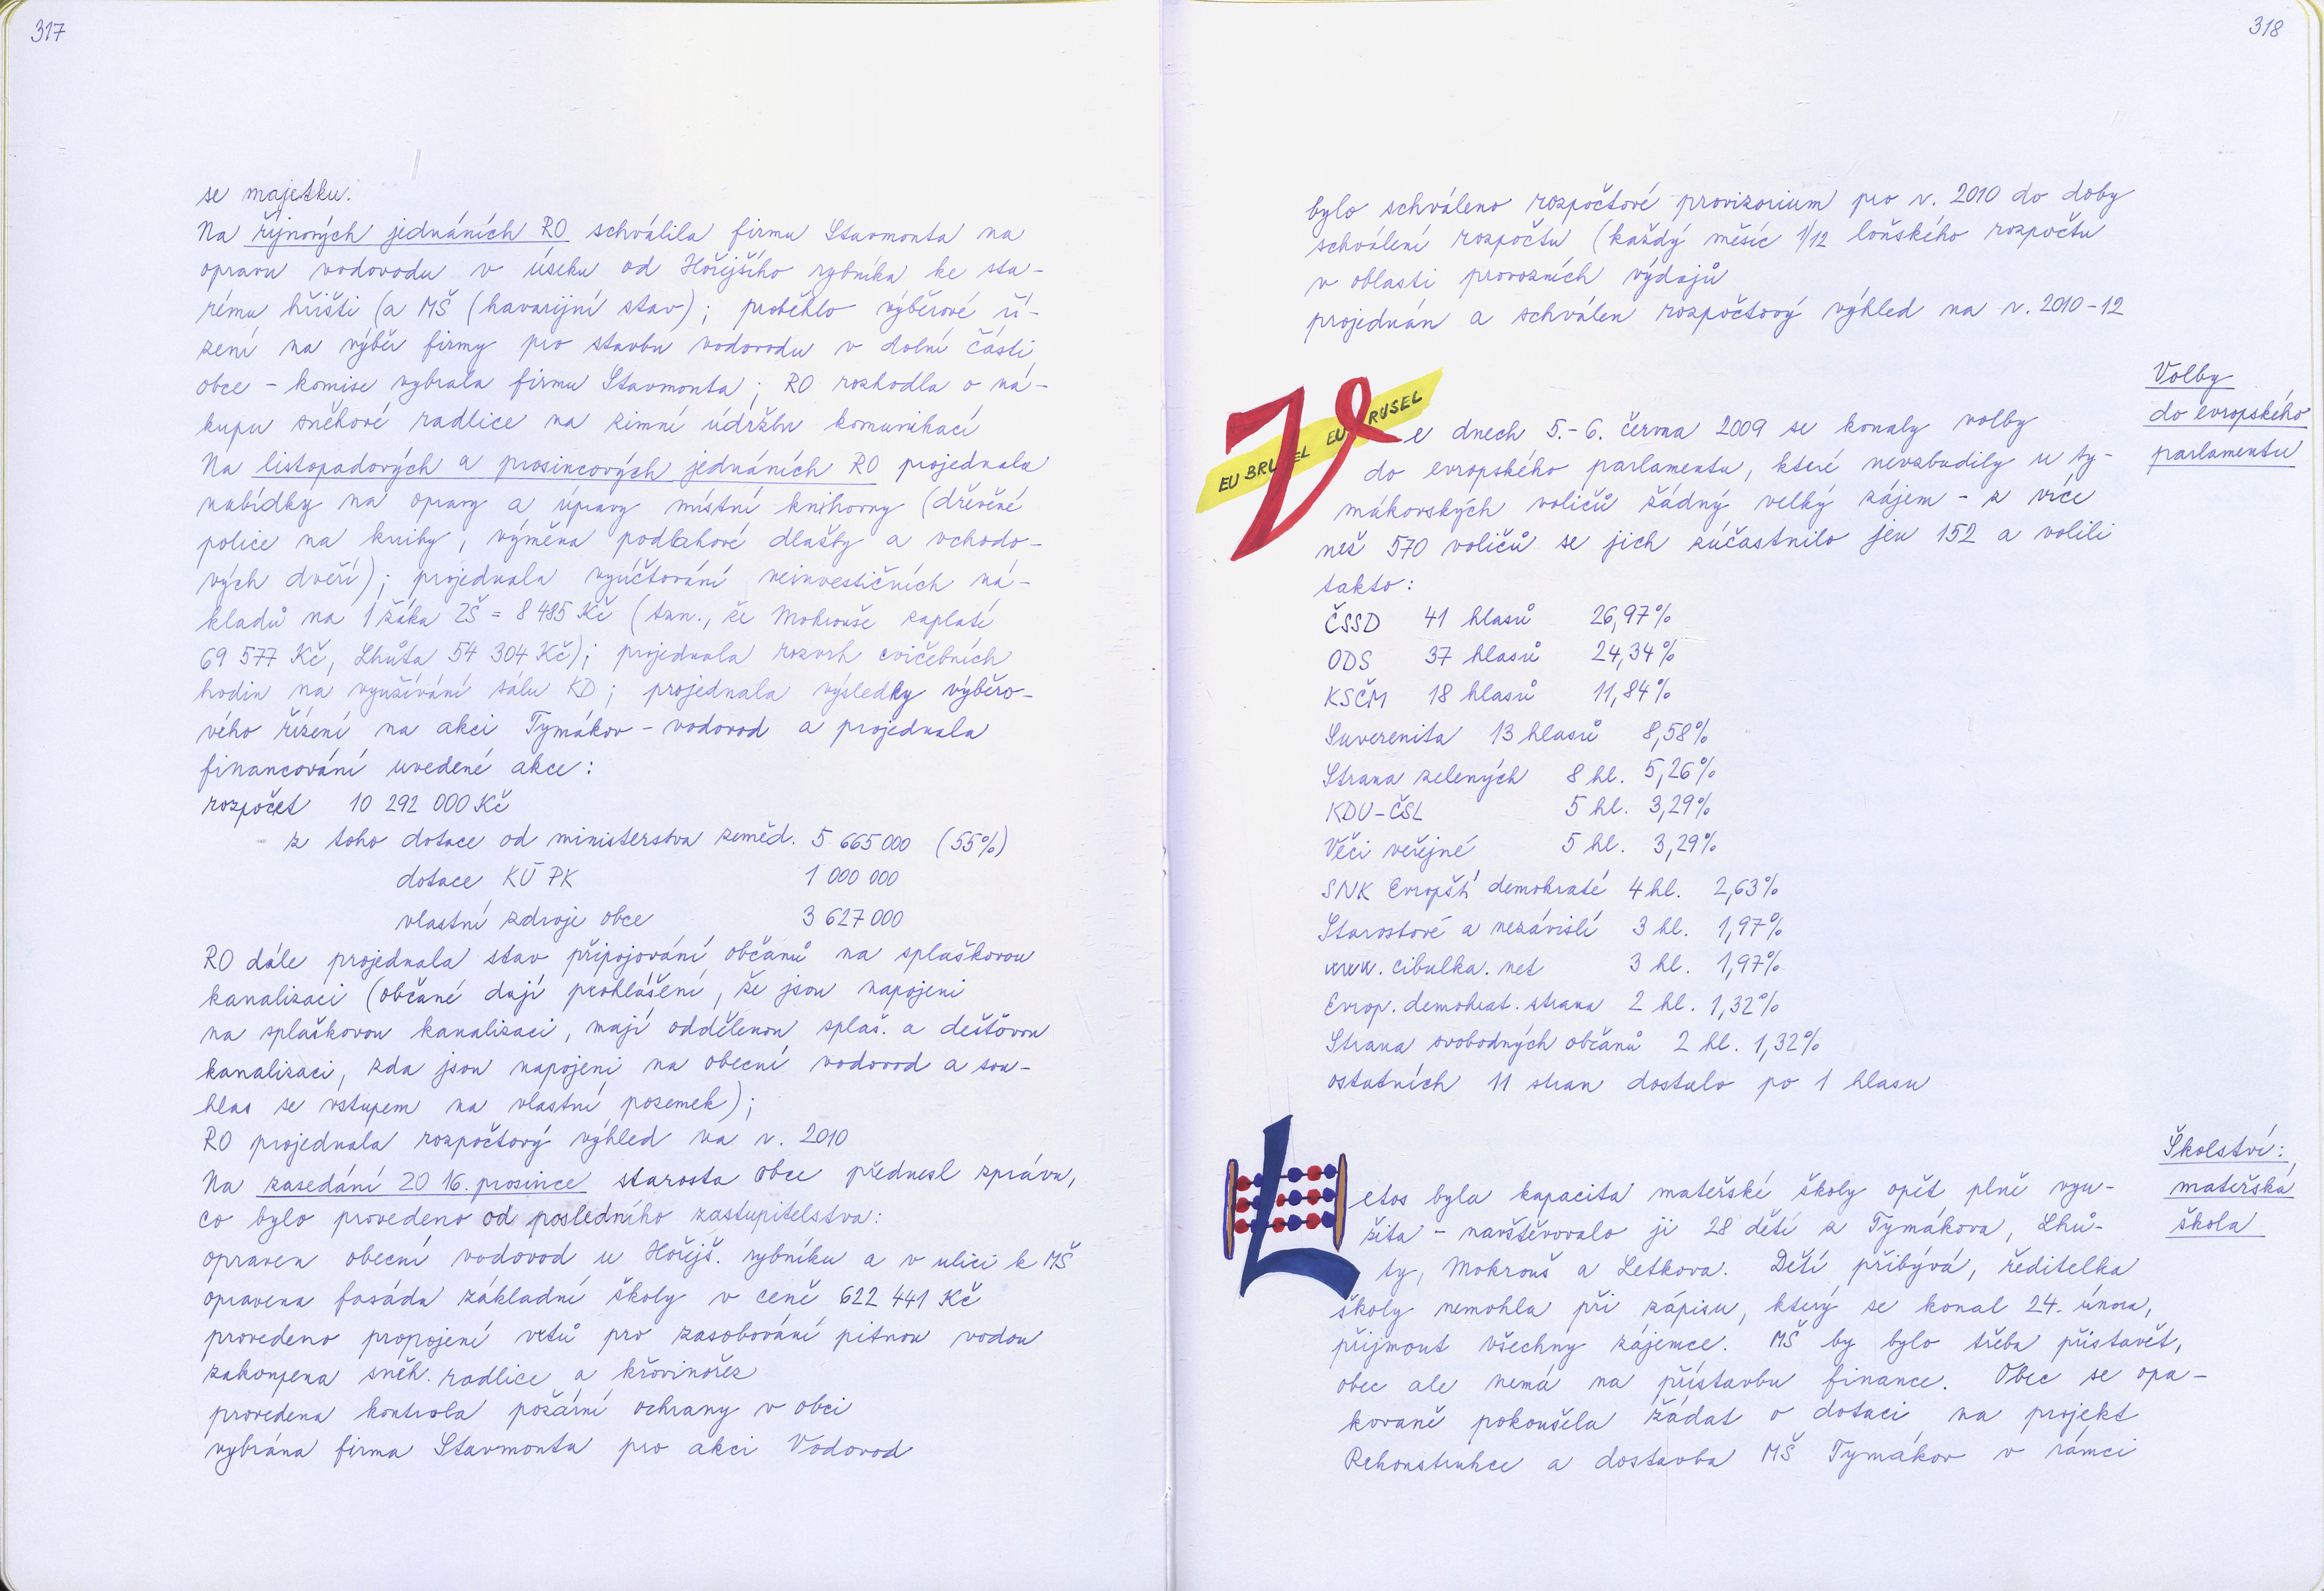 317
se majetku.
Na říjnových jednáních RO schválila firmu Stavmonta na
opravu vodovodu v úseku od Hořejšího rybníka ke sta-
rému hřišti (a MŠ (havarijní stav); proběhlo výběrové ří-
zení na výběr firmy pro stavbu vodovodu v dolní části
obce – komise vybrala firmu Stavmonta; RO rozhodla o ná-
kupu sněhové radlice na zimní údržbu komunikací
Na listopadových a prosincových jednáních RO projednala
nabídky na opravy a úpravy místní knihovny (dřevěné
police na knihy, výměna podlahové dlažby a vchodo-
vých dveří); projednala vyúčtování neinvestičních ná-
kladů na 1 žáka ZŠ = 8 485 Kč (tzn., že Mokrouše zaplatí
69 577 Kč, Lhůta 54 304 Kč); projednala rozvrh cvičebních
hodin na využívání sálu KD; projednala výsledky výběro-
vého řízení na akci Tymákov – vodovod a projednala
financování uvedené akce:
rozpočet 10 292 000 Kč
z toho dotace od ministerstva zeměd. 5 665 000 (55%)
dotace KÚ PK 1 000 000
vlastní zdroje obce 3 627 000
RO dále projednala stav připojování občanů na splaškovou
kanalizaci (občané dají prohlášení, že jsou napojeni
na splaškovou kanalizaci, mají oddělenou splaš. a dešťovou
kanalizaci, zda jsou napojeni na obecní vodovod a sou-
hlas se vstupem na vlastní pozemek);
RO projednala rozpočtový výhled na r. 2010
Na zasedání ZO 16. prosince starosta obce přednesl zprávu,
co bylo provedeno od posledního zastupitelstva:
opraven obecní vodovod u Hořejš. rybníku a v ulici k MŠ
opravena fasáda základní školy v ceně 622 441 Kč
provedeno propojení vrtů pro zasobování pitnou vodou
zakoupena sněh. radlice a křovinořez
provedena kontrola požární ochrany v obci
vybrána firma Stavmonta pro akci Vodovod
318
bylo schváleno rozpočtové provizorium pro r. 2010 do doby
schválení rozpočtu (každý měsíc 1/12 loňského rozpočtu
v oblasti provozních výdajů
projednán a schválen rozpočtový výhled na r. 2010–12
Volby
do evropského
parlamentu
EU BRUSEL EU BRUSEL
Ve dnech 5.–6. června 2009 se konaly volby
do evropského parlamentu, které nevzbudily u ty-
mákovských voličů žádný velký zájem – z více
než 570 voličů se jich zúčastnilo jen 152 a volili
takto:
ČSSD 41 hlasů 26,97%
ODS 37 hlasů 24,34%
KSČM 18 hlasů 11,84%
Suverenita 13 hlasů 8,58%
Strana zelených 8 hl. 5,26%
KDU–ČSL 5 hl. 3,29%
Věci veřejné 5 hl. 3,29%
SNK Evropští demokraté 4 hl. 2,63%
Starostové a nezávislí 3 hl. 1,97%
www.cibulka.net 3 hl. 1,97%
Evrop. demokrat. strana 2 hl. 1,32%
Strana svobodných občanů 2 hl. 1,32%
ostatních 11 stran dostalo po 1 hlasu
Školství:
mateřská
škola
Letos byla kapacita mateřské školy opět plně vyu-
žita – navštěvovalo ji 28 dětí z Tymákova, Lhů-
ty, Mokrouš a Letkova. Dětí přibývá, ředitelka
školy nemohla při zápisu, který se konal 24. února,
přijmout všechny zájemce. MŠ by bylo třeba přistavět,
obec ale nemá na přístavbu finance. Obec se opa-
kovaně pokoušela žádat o dotaci na projekt
Rekonstrukce a dostavba MŠ Tymákov v rámci